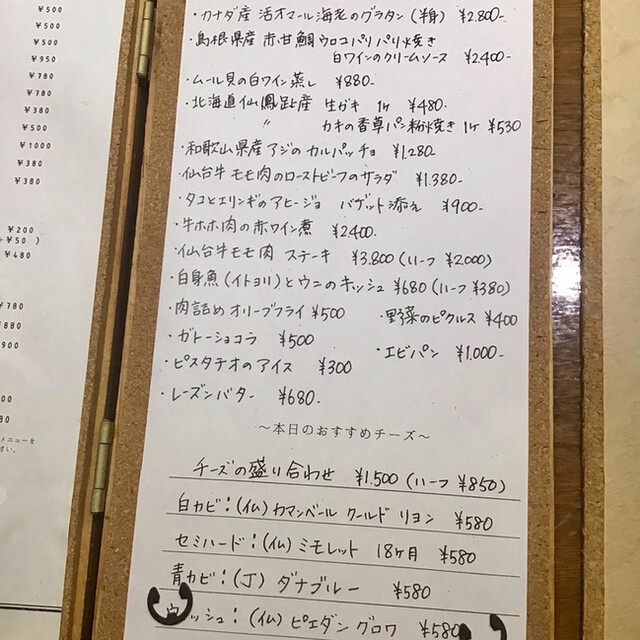 ¥500
¥500
¥500
¥950
¥780
¥780
¥380
¥500
¥1000
¥380
¥380
¥200
+¥50 )
¥480
¥780
880
900
メニューを
さい。
・カナダ産 活オマール海老のグラタン (半身) ¥2.800-
・島根県産 赤甘鯛ウロコパリパリ焼き
白ワインのクリームソース ¥2400-
・ムール貝の白ワイン蒸し ¥880-
・北海道仙鳳趾産 生ガキ 1ケ ¥480-
〃 カキの香草パン粉焼き 1ケ ¥530
・和歌山県産アジのカルパッチョ ¥1.280-
・仙台牛モモ肉のローストビーフのサラダ ¥1.380-
・タコとエリンギのアヒージョ バゲット添え ¥900-
・牛ホホ肉の赤ワイン煮 ¥2400-
・仙台牛モモ肉 ステーキ ¥3.800 (ハーフ ¥2.000)
・白身魚(イトヨリ)とウニのキッシュ ¥680 (ハーフ ¥380)
・肉詰めオリーブフライ ¥500 ・野菜のピクルス ¥400
・ガトーショコラ ¥500
・エビパン ¥1.000-
・ピスタチオのアイス ¥300
・レーズンバター ¥680-
～本日のおすすめチーズ～
チーズの盛り合わせ ¥1.500 (ハーフ ¥850)
白カビ：(仏) カマンベール クールド リヨン ¥580
セミハード：(仏) ミモレット 18ヶ月 ¥580
青カビ：(丁) ダナブルー ¥580
ッシュ：(仏) ピエダングロワ ¥580